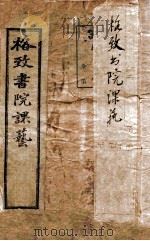 格致書院課藝
格致书院课艺